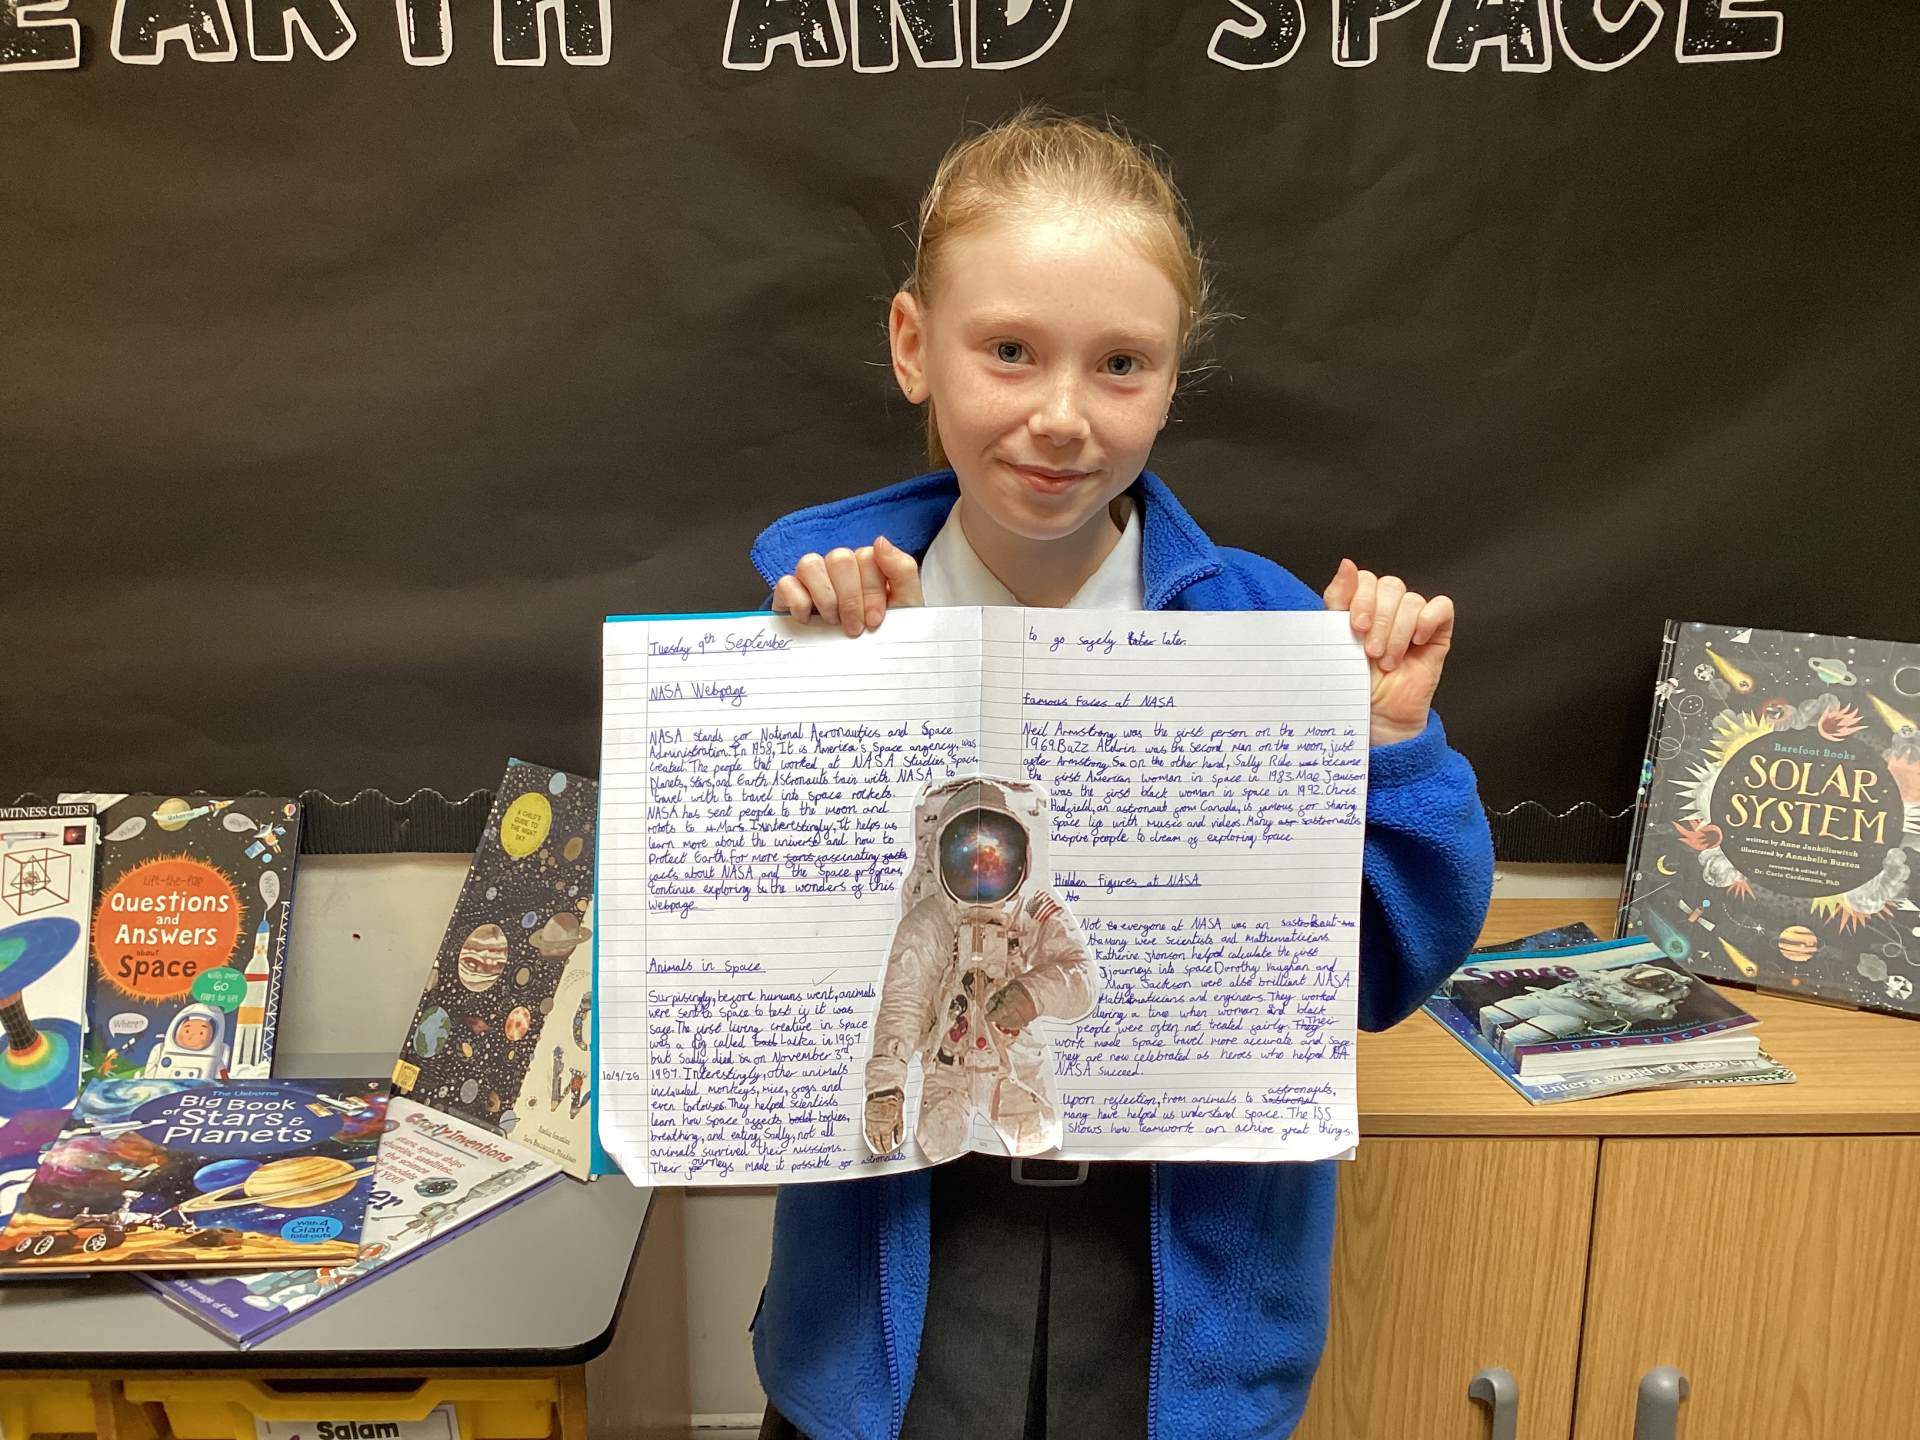 EARTH AND SPACE
Tuesday 9th September
NASA Webpage
NASA stands for National Aeronautics and Space
Administration. In 1958, It is America's Space angency, was
created. The people that worked at NASA Studies Space,
Planets, Stars, and Earth. Astronauts train with NASA to
travel with to travel into space rockets.
NASA has sent people to the moon and
robots to Mars. Interestingly, It helps us
learn more about the universe and how to
Protect Earth. For more fascinating
facts about NASA, and the space program,
Continue exploring the wonders of this
Webpage.
Animals in Space
Surpisingly, before humans went, animals
were sent to Space to test if it was
safe. The first living creature in space
was a dog called Laika in 1957
but Sadly died on November 3rd,
10/9/25
1957. Interestingly, other animals
included monkeys, mice, frogs and
even tortoises. They helped scientists
learn how space affects bodies,
breathing, and eating. Sadly, not all
animals survived their missions.
Their journeys made it possible for astronauts
to go safely later later.
Famous Faces at NASA
Neil Armstrong was the first person on the Moon in
1969. Buzz Aldrin was the second man on the moon, just
after Armstrong. So on the other hand, Sally Ride was became
the first American woman in space in 1983. Mae Jemison
was the first black woman in space in 1992. Chris
Hadfield, an astronaut from Canada, is famous for sharing
Space life with music and videos. Many
inspire people to dream of exploring space.
Hidden Figures at NASA
No
Not everyone at NASA was an
Many were scientists and mathematicians.
Katherine Jhonson helped calculate the first
Journeys into space. Dorothy Vaughan and
Mary Jackson were also brilliant NASA
Mathematicians and engineers. They worked
during a time when woman and black
people were often not treated fairly. Their
work made space travel more accurate and safe.
They are now celebrated as heroes who helped
NASA succeed.
astronauts,
Upon reflection, from animals to
Many have helped us understand space. The ISS
Shows how teamwork can achieve great things.
WITNESS GUIDES
Lift-the-flap
Questions
and
Answers
about
Space
With over
60
flaps to lift
What?
Where?
A CHILD'S
GUIDE TO
THE NIGHT
SKY
The Usborne
Big Book
of Stars &
Planets
With 4
Giant
fold-outs
Inventions
YOU!
passage of time
Salam
Barefoot Books
SOLAR
SYSTEM
written by Anne Jankéliowitch
illustrated by Annabelle Buxton
Dr. Carie Cardamone, PhD
Space
1000 FACTS
Enter a world of discovery